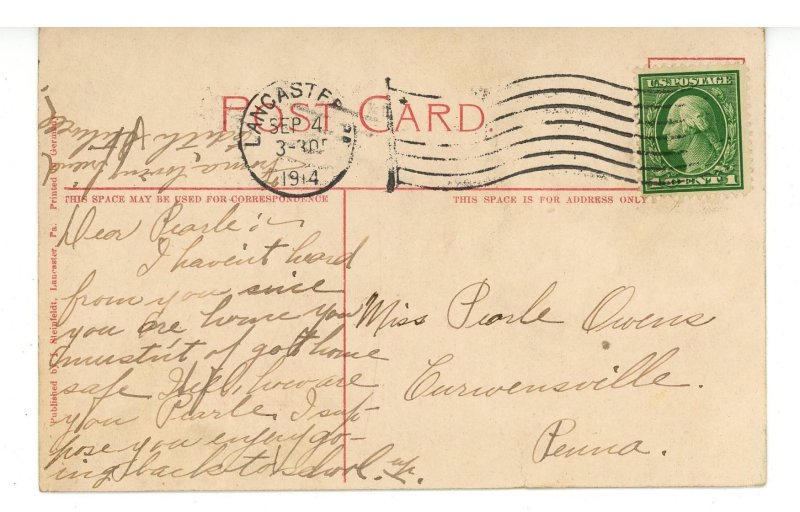 POST CARD.
LANCASTER PA
SEP 4
3-30P
1914
U.S. POSTAGE
1 CENT 1
THIS SPACE MAY BE USED FOR CORRESPONDENCE
THIS SPACE IS FOR ADDRESS ONLY
Published by I. Steinfeldt, Lancaster, Pa. Printed in Germany
Dear Pearle:~
I haven't heard
from you since
you are home You
mustn't of gott home
safe Well, how are
you Pearle, I sup-
pose you enjoy go-
ing back to school.
Miss Pearle Owens
Curwensville.
Penna.